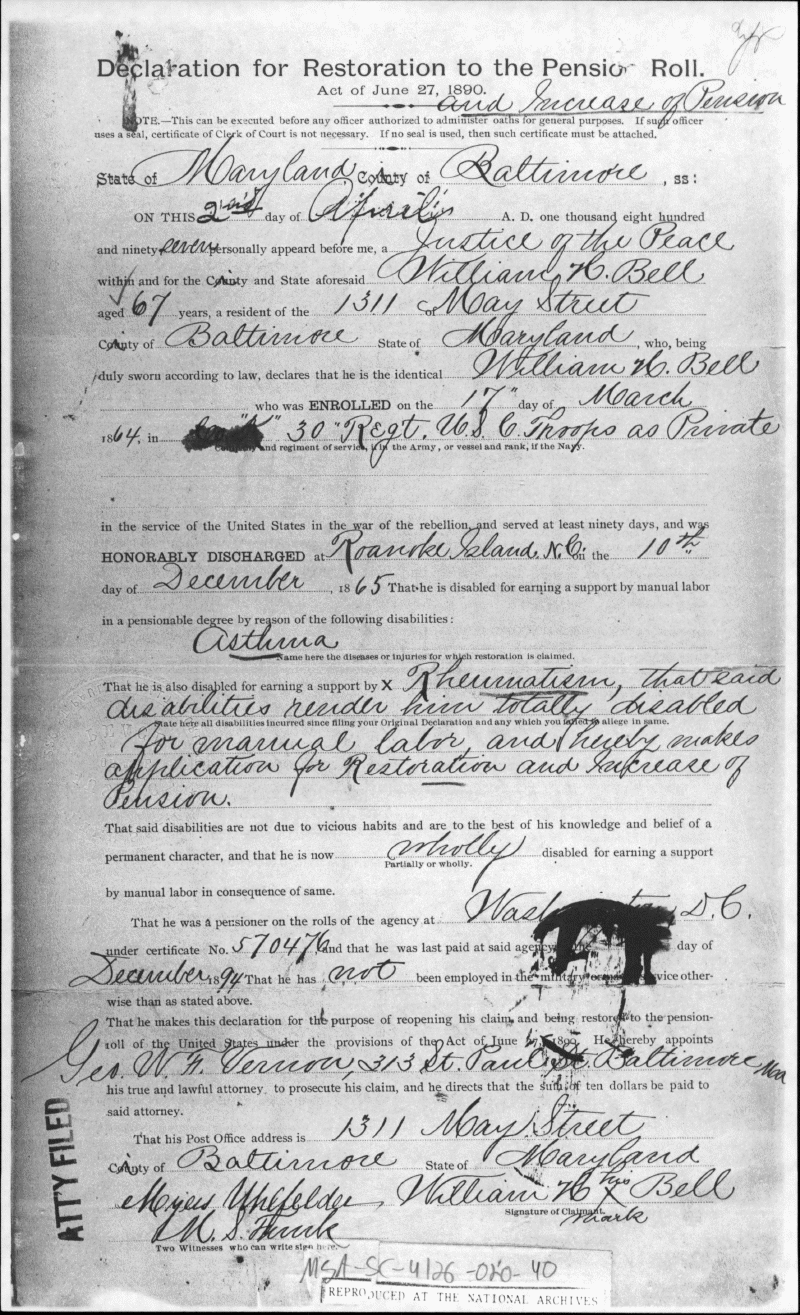 Declaration for Restoration to the Pension Roll.
Act of June 27, 1890.
and Increase of Pension
NOTE.—This can be executed before any officer authorized to administer oaths for general purposes. If such officer
uses a seal, certificate of Clerk of Court is not necessary. If no seal is used, then such certificate must be attached.
State of Maryland County of Baltimore, ss:
ON THIS 2nd day of April A. D. one thousand eight hundred
and ninety seven personally appeard before me, a Justice of the Peace
within and for the County and State aforesaid William H. Bell
aged 67 years, a resident of the 1311 of May Street
County of Baltimore State of Maryland, who, being
duly sworn according to law, declares that he is the identical William H. Bell
who was ENROLLED on the 17" day of March
1864, in Co "K" 30" Regt. U.S.C. Troops as Private
Company and regiment of service, if in the Army, or vessel and rank, if the Navy.
in the service of the United States in the war of the rebellion, and served at least ninety days, and was
HONORABLY DISCHARGED at Roanoke Island N.C. on the 10th
day of December, 1865 That he is disabled for earning a support by manual labor
in a pensionable degree by reason of the following disabilities:
Asthma
Name here the diseases or injuries for which restoration is claimed.
That he is also disabled for earning a support by x Rheumatism, that said
disabilities render him totally disabled
State here all disabilities incurred since filing your Original Declaration and any which you failed to allege in same.
for manual labor, and hereby makes
application for Restoration and Increase of
Pension.
That said disabilities are not due to vicious habits and are to the best of his knowledge and belief of a
permanent character, and that he is now wholly disabled for earning a support
Partially or wholly.
by manual labor in consequence of same.
That he was a pensioner on the rolls of the agency at Washington D.C.
under certificate No. 570476 and that he was last paid at said agency the day of
December 1894 That he has not been employed in the military or service other-
wise than as stated above.
That he makes this declaration for the purpose of reopening his claim, and being restored to the pension-
roll of the United States under the provisions of the Act of June 27, 1890. He hereby appoints
Geo. W. F. Vernon, 313 St. Paul St. Baltimore
his true and lawful attorney to prosecute his claim, and he directs that the sum of ten dollars be paid to
said attorney.
That his Post Office address is 1311 May Street
County of Baltimore State of Maryland
William H his x Bell
mark
Signature of Claimant.
M. S.
Two Witnesses who can write sign here.
ATT'Y FILED
MSA-SC-4126-020-40
REPRODUCED AT THE NATIONAL ARCHIVES